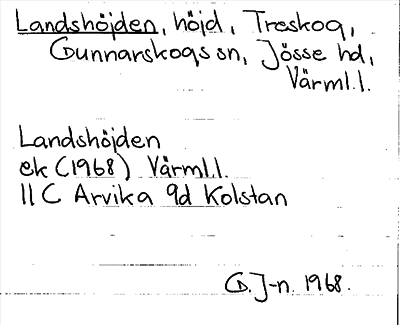 Landshöjden, höjd, Treskog,
Gunnarskogs sn, Jösse hd,
Värml. l.
Landshöjden
ek (1968) Värml.l.
11 C Arvika 9d Kolstan
G. J-n. 1968.